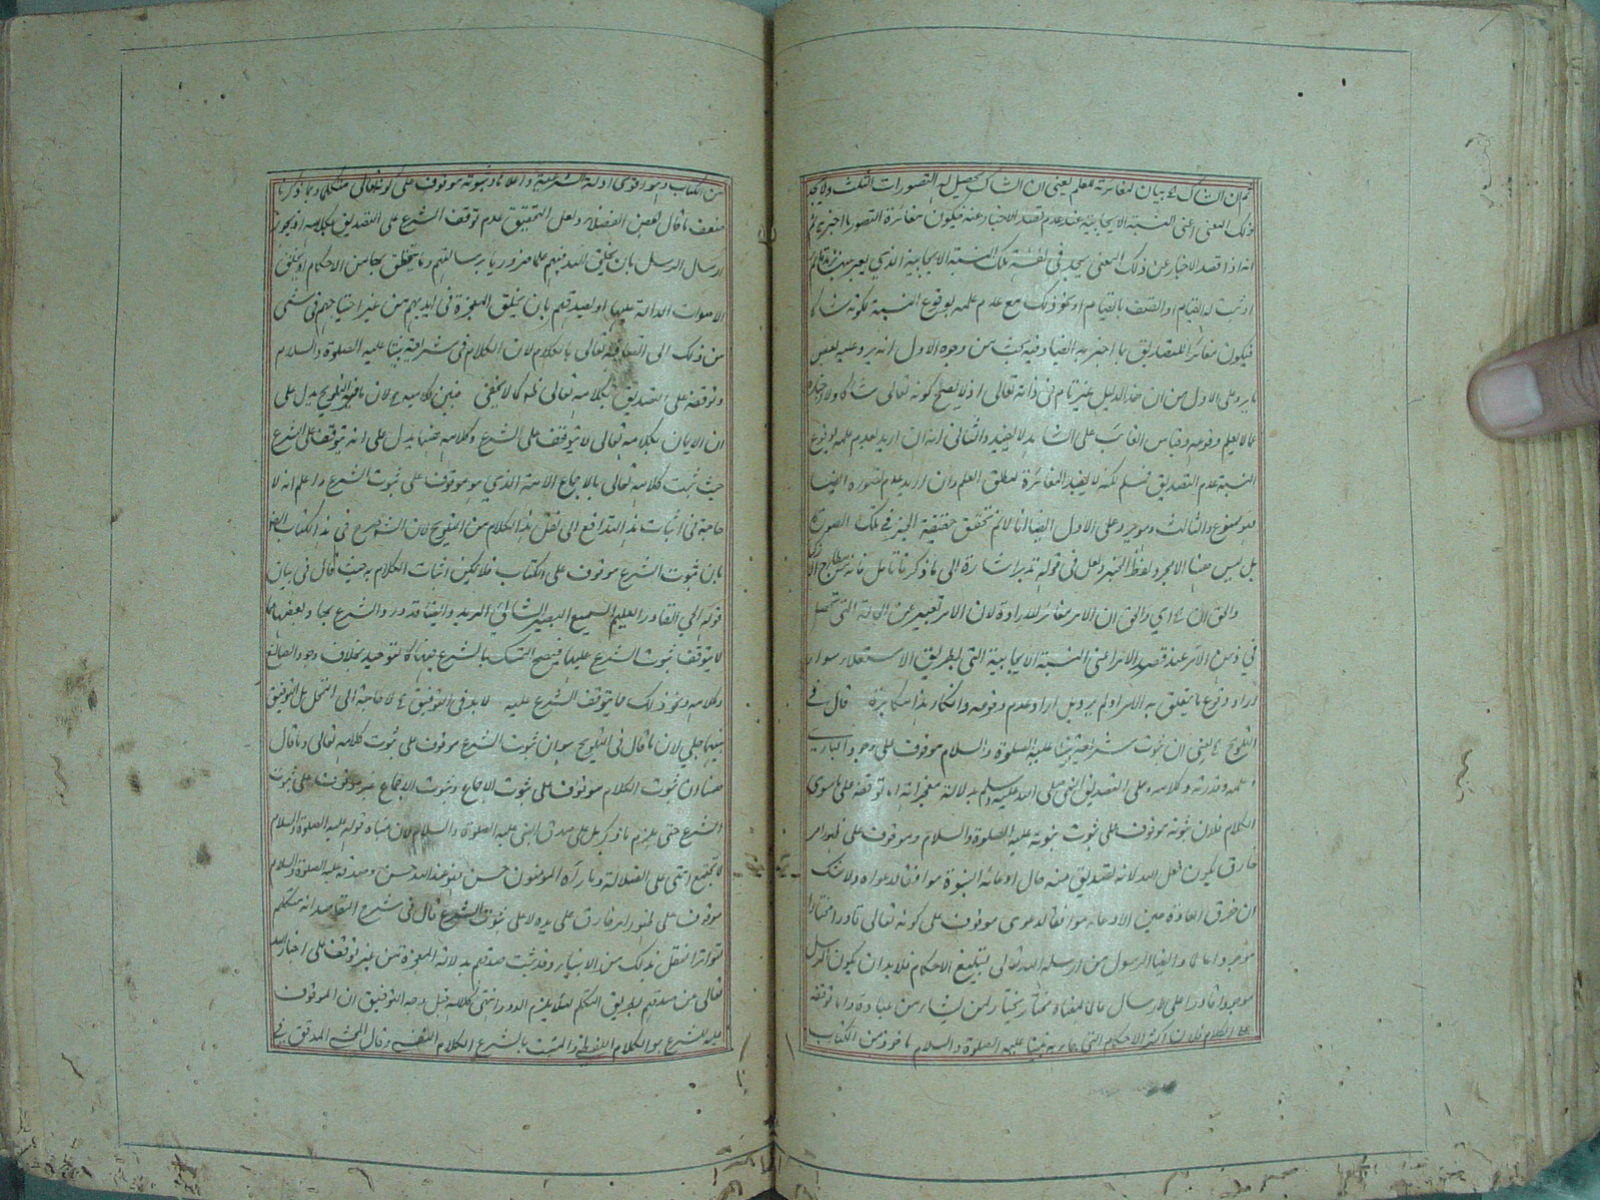 ثم ان الشاك بيان لمغائرته للعلم يعني ان الشاك يحصل له التصورات الثلث ولا يجد
ذلك المعنى اعني النسبة الايجابية عند عدم قصد الاخبار عنه فيكون مغائرة التصور ما اخبر به ثم
انه اذا قصد الاخبار عن ذلك المعنى يجد في نفسه تلك النسبة الايجابية الذي يعبر عنه بزيد قائم
او ثبت له القيام او اتصف بالقيام او نحو ذلك مع عدم علمه بوقوع النسبة لكونه شاكا
فيكون مغائرا للتصديق بما اخبر به ايضا وفيه بحث من وجوه الاول انه يرد عليه بعض
ما يرد على الاول من ان هذا الدليل غير تام في ذاته تعالى اذ لا يصح كونه تعالى شاكا ولا اخباره
عما لا يعلم وقوعه وقياس الغائب على الشاهد لا يفيد والثاني انه ان اريد بعدم علمه بوقوع
النسبة عدم التصديق فمسلم لكنه لا يفيد المغائرة لمطلق العلم وان اريد عدم تصوره ايضا
فهو ممنوع والثالث وهو يرد على الاول ايضا انا لا نم تحقق حقيقة الخبر في تلك الصورة
بل ليس هنا الا مجرد لفظ الخبر ولعل في قوله تدبر اشارة الى ما ذكرنا تامل فانه من مطارح الاذكياء
والحق ان اي والحق ان الامر مغائر للارادة لان الامر تعبير عن الحالة التي تحصل
في ذهن الآمر عند قصد الامر اعني النسبة الايجابية التي بطريق الاستعلاء سواء
اراد وقوع ما يتعلق به الامر او لم يرد بل اراد عدم وقوعه وانكار هذا مكابرة قال في
التلويح يعني ان ثبوت شريعة نبينا عليه الصلوة والسلام موقوف على وجود الباري
وعلمه وقدرته وكلامه وعلى التصديق النبي صلى الله عليه وسلم بدلالة معجزاته اما توقفه على ما سوى
الكلام فلان ثبوته موقوف على ثبوت نبوته عليه الصلوة والسلام وموقوف على ظهور امر
خارق يكون فعل الله لانه تصديق منه حال ادعائه النبوة موافق لدعواه ولا شك
ان خرق العادة حين الادعاء موافقا لدعوى موقوف على كونه تعالى قادرا مختارا
موجودا عالما وايضا الرسول من ارسله الله تعالى بتبليغ الاحكام فلا بد ان يكون المرسل
موجودا قادرا على الارسال عالما مختار يختار لمن يشاء من عباده واما توقفه
على الكلام فلان اكثر الاحكام التي جاء به نبينا عليه الصلوة والسلام ماخوذ من الكتاب
من الكتاب وهو اقوى ادلة الشرعية واعلاها وثبوته موقوف على كونه تعالى متكلما وبما ذكرنا
ضعف ما قال بعض الفضلاء ولعل التحقيق عدم توقف الشرع على التصديق بكلامه اذ يجوز
ارسال الرسل بان يخلق الله فيهم علما ضروريا برسالتهم وما يتعلق بها من الاحكام او يخلق
الاصوات الدالة عليها او يصدقهم بان يخلق المعجزة في ايديهم من غير احتياجهم في شيء
من ذلك الى اتصافه تعالى بالكلام لان الكلام في شريعة نبينا عليه الصلوة والسلام
وتوقفه على تصديق بكلامه تعالى ظاهر كما لا يخفى فبين كلاميه لان ما في التلويح يدل على
ان الايمان بكلامه تعالى لا يتوقف على الشرع وكلامه هنا يدل على انه يتوقف على الشرع
حيث ثبت كلامه تعالى بالاجماع الامة الذي هو موقوف على ثبوت الشرع واعلم انه لا
حاجة في اثبات هذا التدافع الى نقل هذا الكلام من التلويح لان الشارح صرح في هذا الكتاب ايضا
بان ثبوت الشرع موقوف على الكتاب فلا يمكن اثبات الكلام به حيث قال في بيان
قوله الحي القادر العليم السميع البصير الشائي المريد وايضا قد ورد الشرع بها وبعضها مما
لا يتوقف ثبوت الشرع عليها فيصح التمسك بالشرع فيها كالتوحيد بخلاف وجود الصانع
وكلامه ونحو ذلك مما يتوقف الشرع عليه لا بد في التوفيق لا حاجة الى التمحل بل التوفيق
بينهما جلي لان ما قال في التلويح هو ان ثبوت الشرع موقوف على ثبوت كلامه تعالى وما قال
هنا ان ثبوت الكلام موقوف على ثبوت الاجماع وثبوت الاجماع غير موقوف على ثبوت
الشرع حتى يلزم ما ذكر بل على صدق النبي عليه الصلوة والسلام لان مبناه قوله عليه الصلوة والسلام
لا تجتمع امتي على الضلالة وما رآه المؤمنون حسن فهو عند الله حسن وصدقه عليه الصلوة والسلام
موقوف على ظهور امر خارق على يده لا على ثبوت الشرع قال في شرح المقاصد انه متكلم
تواترا بنقل ذلك من الانبياء وقد ثبت صدقهم بدلالة المعجزة من غير توقف على اخبار الله
تعالى عن صدقهم بطريق التكلم لئلا يلزم الدور انتهى كلامه قيل وجه التوفيق ان الموقوف
عليه للشرع هو الكلام اللفظي والمثبت بالشرع الكلام النفسي وقال المحشي المدقق في